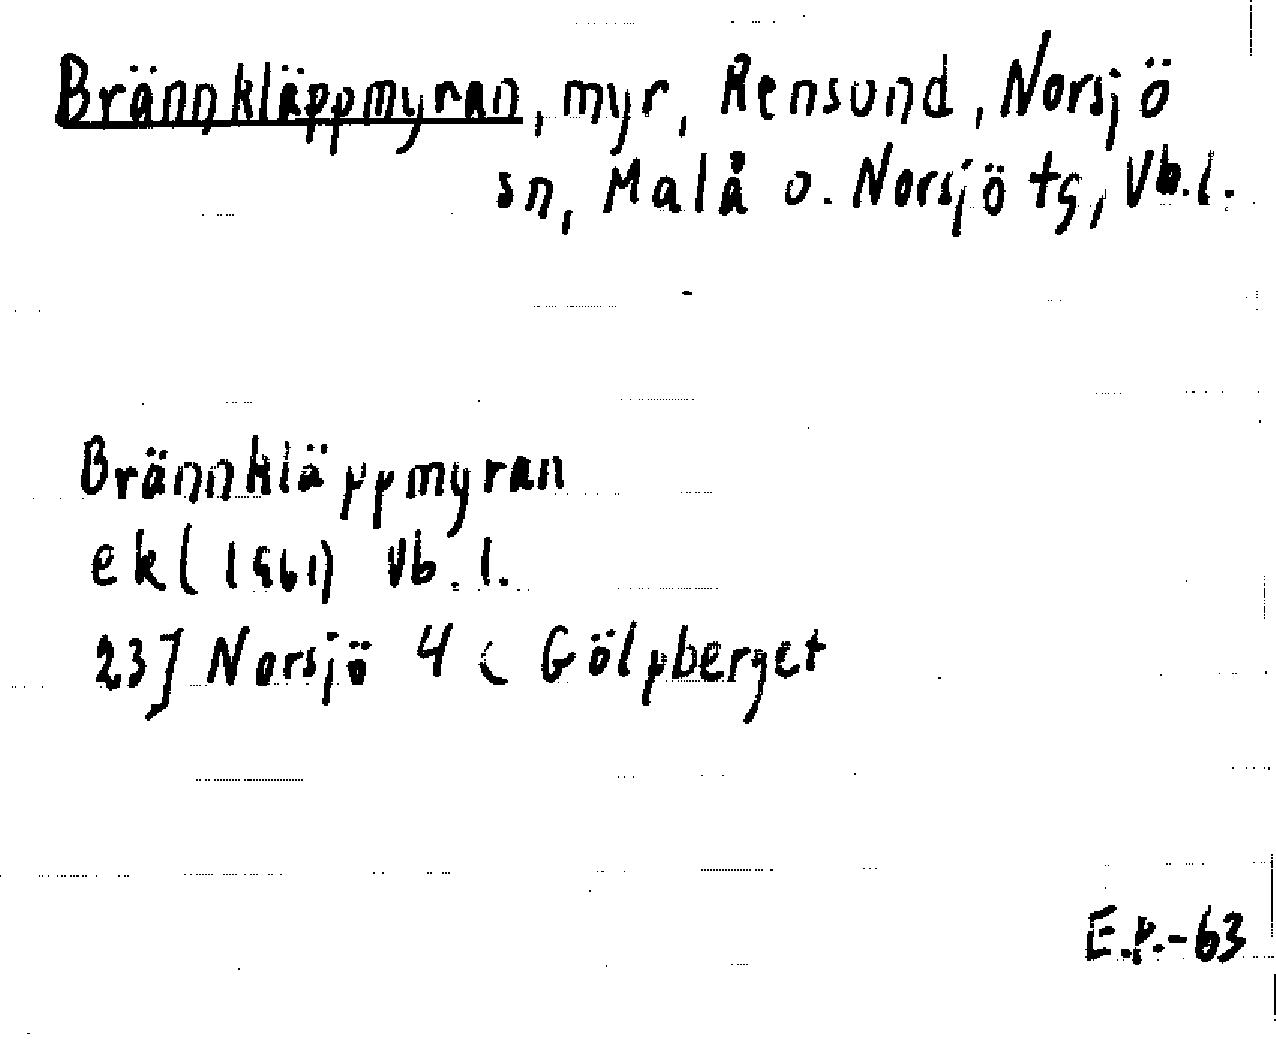 Brännkläppmyran, myr, Rensund, Norsjö
sn, Malå o. Norsjö tg, Vb.l.
Brännkläppmyran
ekl (1961) Vb.l.
23J Norsjö 4 c Gölpberget
E.P.-63